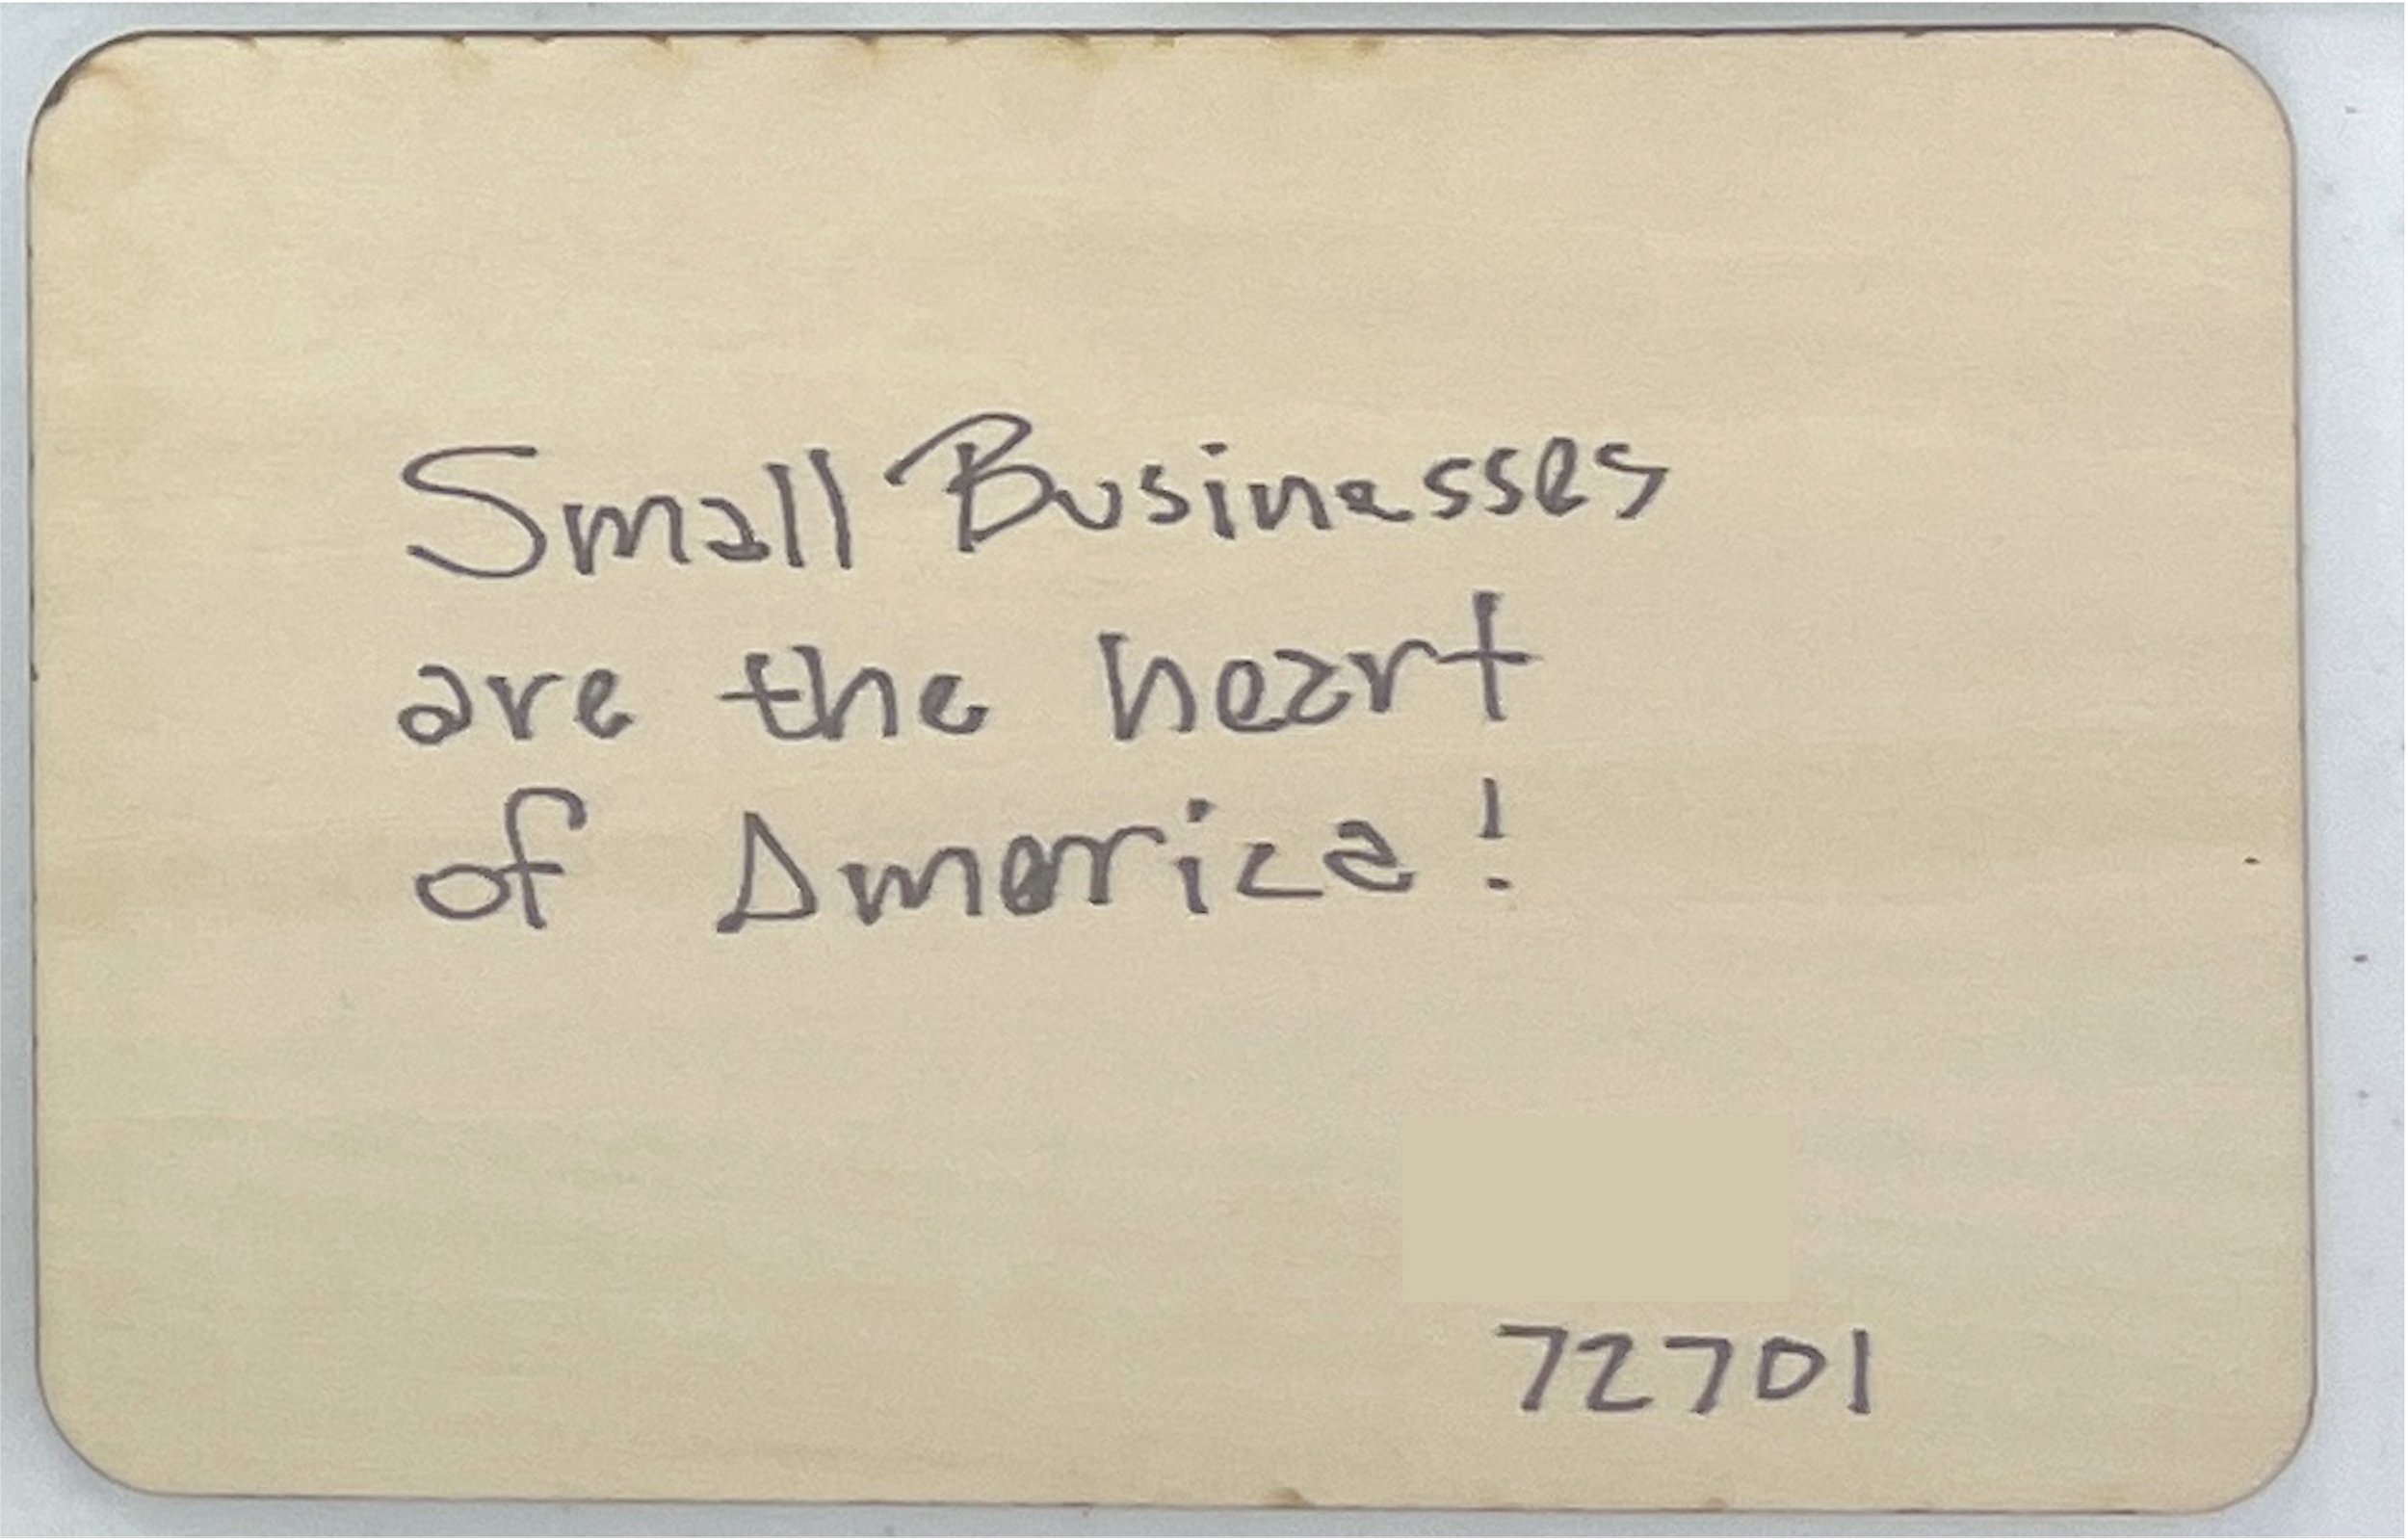 Small Businesses
are the heart
of America!
72701